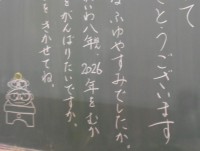 て
とうございます
なふゆやすみでしたか。
いわ八年、2026年をむか
をがんばりたいですか。
をきかせてね。